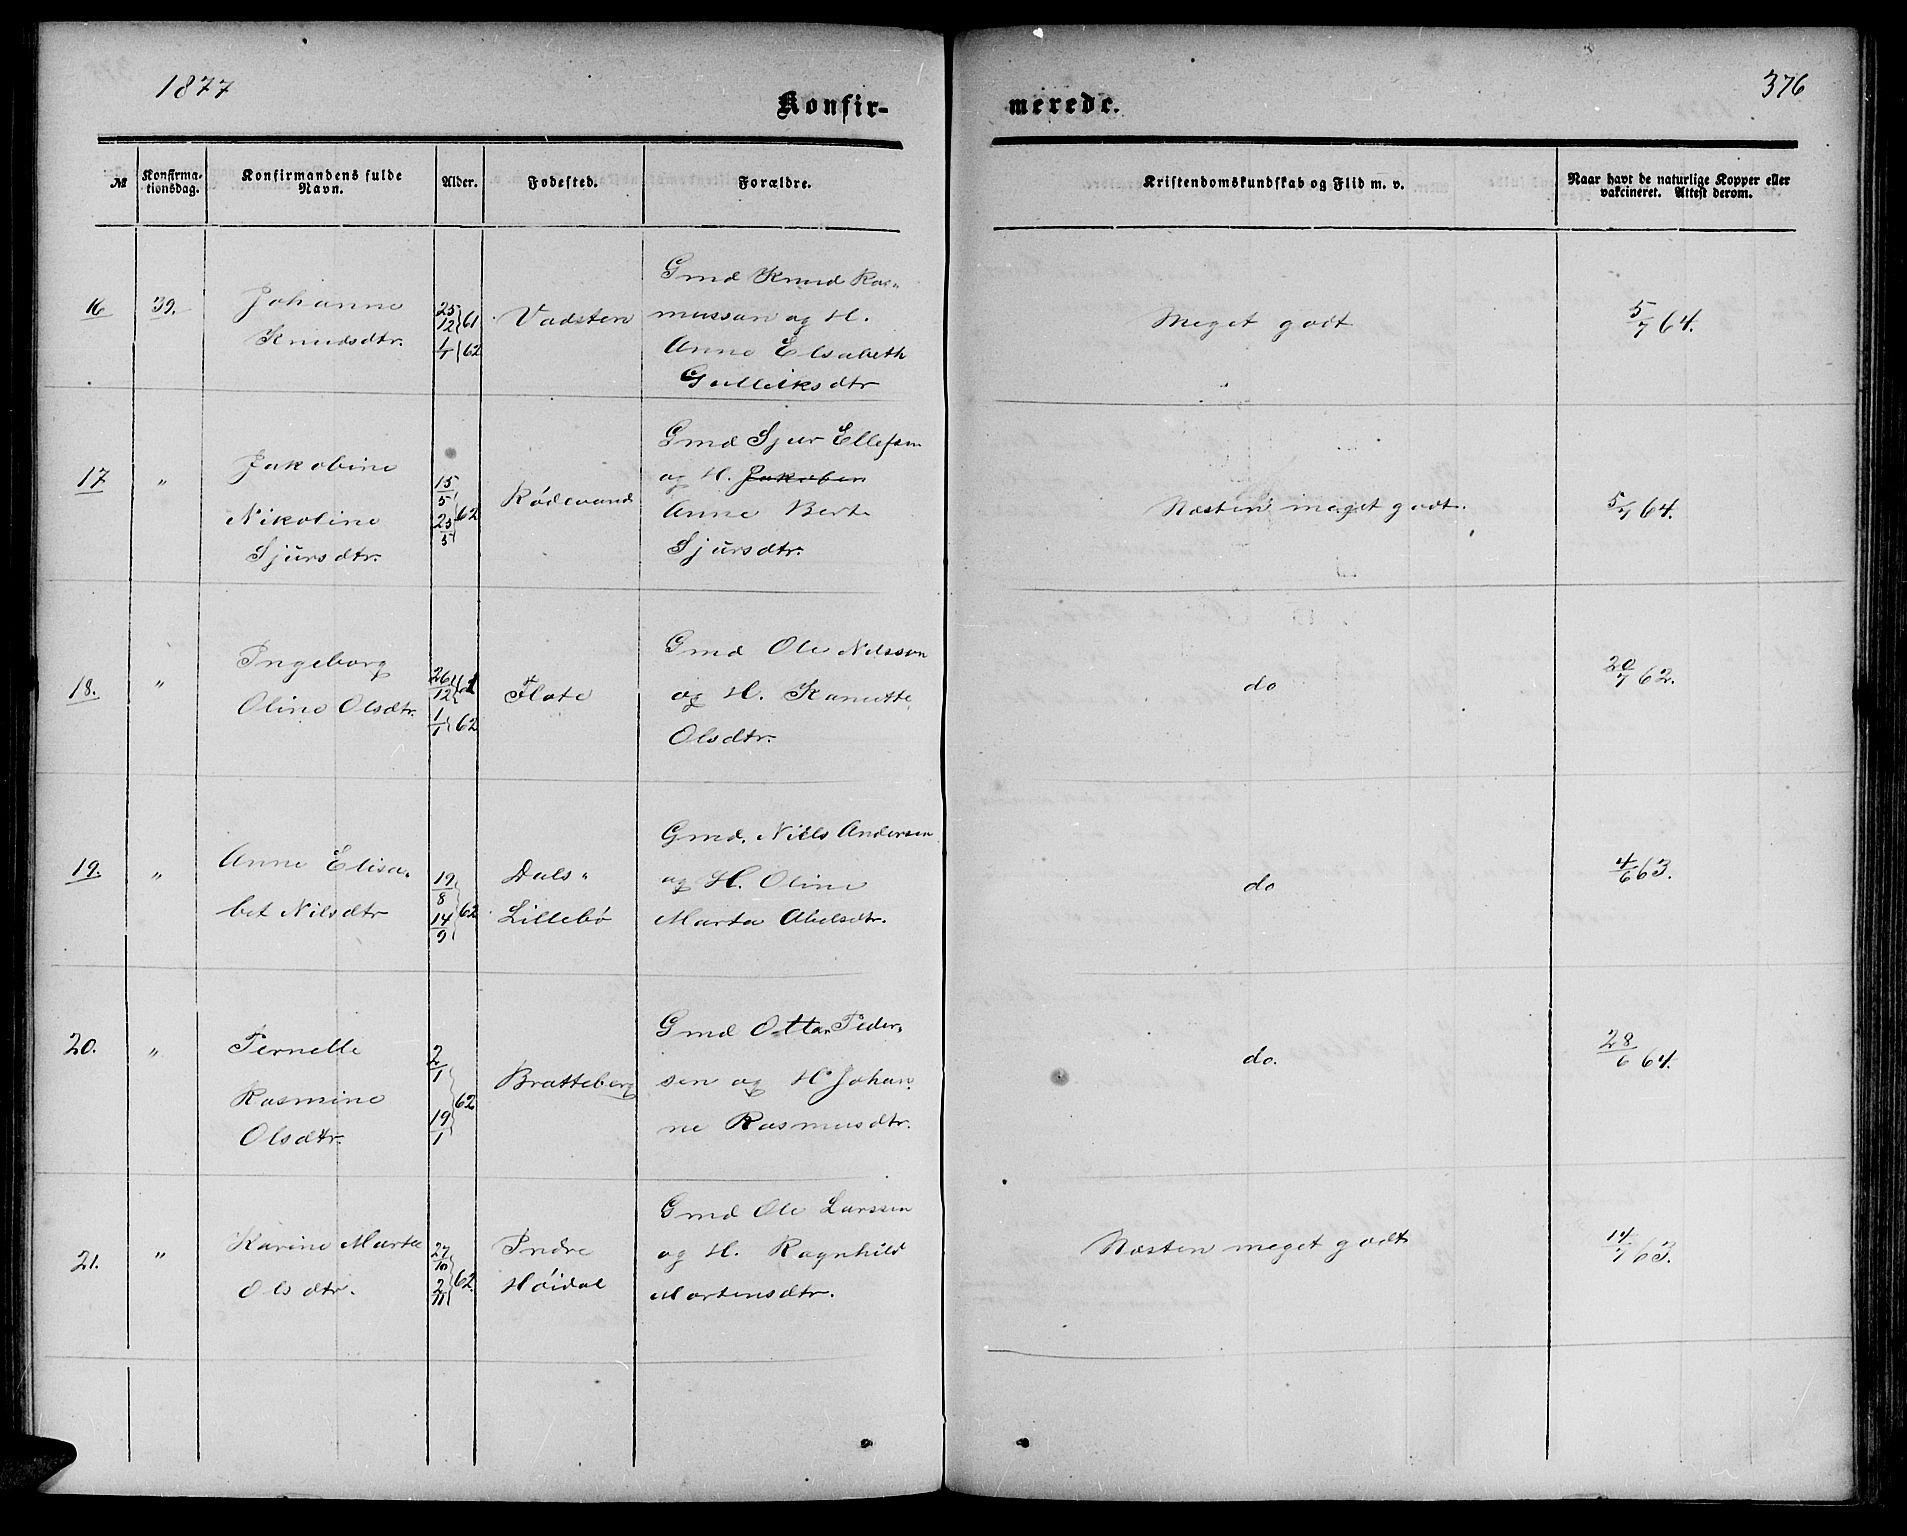 1877
376
Konfir-
merede.
№
Konfirma-
tionsdag.
Konfirmandens fulde
Navn.
Alder.
Fodested.
Forældre.
Kristendomskundskab og Flid m. v.
Naar havt de naturlige Kopper eller
vakcineret. Attest derom.
16
Johanne
Knudsdtr.
25/12 61
62
Vadsten
Gmd Knud Ras„
mussan og H.
Anne Elsabeth
Gulleiksdtr
Meget godt
5/7 64.
17
„
Jakobine
Nikoline
Sjursdtr.
15/5
25/5 62
Rødevand
Gmd Sjur Ellefsen
og H. Jakoben
Anne Berte
Sjursdtr.
Næsten meget godt.
5/7 64.
18.
„
Ingeborg
Oline Olsdtr.
26/12 61
1/1 62
Flate
Gmd Ole Nilsson
og H. Kanutte
Olsdtr.
do
20/7 62.
19.
„
Anne Elisa„
bet Nilsdtr
19/8
14/9 62
Dals„
Lillebø
Gmd. Nills Andersen
og H. Oline
Marta Abelsdtr.
do
4/6 63.
20.
„
Pernelle
Rasmine
Olsdtr.
2/1
19/1 62
Bratteberg
Gmd Otta Peder„
sen og H Johan„
ne Rasmusdtr.
do.
28/6 64.
21.
„
Karine Marta
Olsdtr.
27/10
2/11 62.
Indre
Høidal
Gmd Ole Larssen
og H. Ragnhild
Martensdtr.
Næsten meget godt
14/7 63.